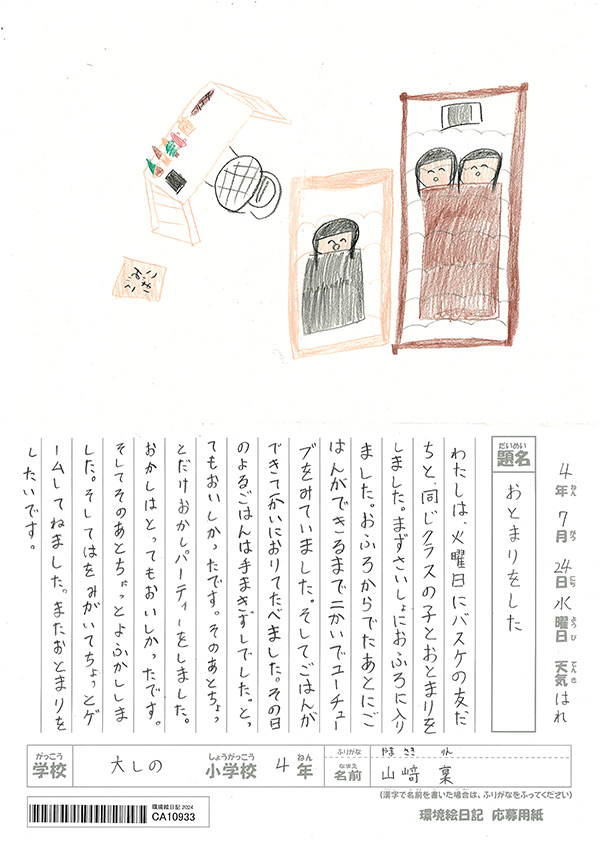 4年ねん 7月がつ 24日にち 水曜日ようび 天気てんき はれ
だいめい
題名 おとまりをした
わたしは、火曜日にバスケの友だ
ちと、同じクラスの子とおとまりを
しました。まずさいしょにおふろに入り
ました。おふろからでたあとにご
はんができるまで二かいでユーチュー
ブをみていました。そしてごはんが
できて一かいにおりてたべました。その日
のよるごはんは手まきずしでした。とっ
てもおいしかったです。そのあとちょっ
とだけおかしパーティーをしました。
おかしはとってもおいしかったです。
そしてそのあとちょっとよふかししま
した。そしてはをみがいてちょっとゲ
ームしてねました。またおとまりを
したいです。
がっこう しょうがっこう ねん
学校 大しの 小学校 4年
ふりがな やま さき りん
なまえ
名前 山﨑 稟
(漢字で名前を書いた場合は、ふりがなをふってください)
環境絵日記 応募用紙
環境絵日記 2024
CA10933